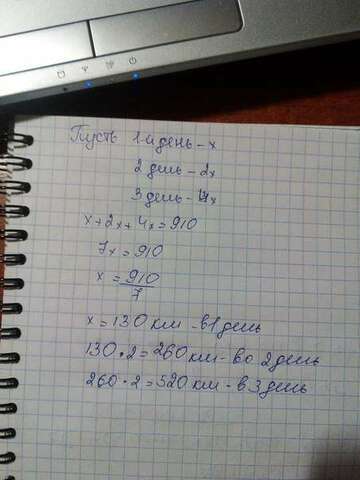 Пусть 1-й день - x
2 день - 2x
3 день - 4x
x + 2x + 4x = 910
7x = 910
x = 910/7
x = 130 км - в 1 день
130 · 2 = 260 км - во 2 день
260 · 2 = 520 км - в 3 день